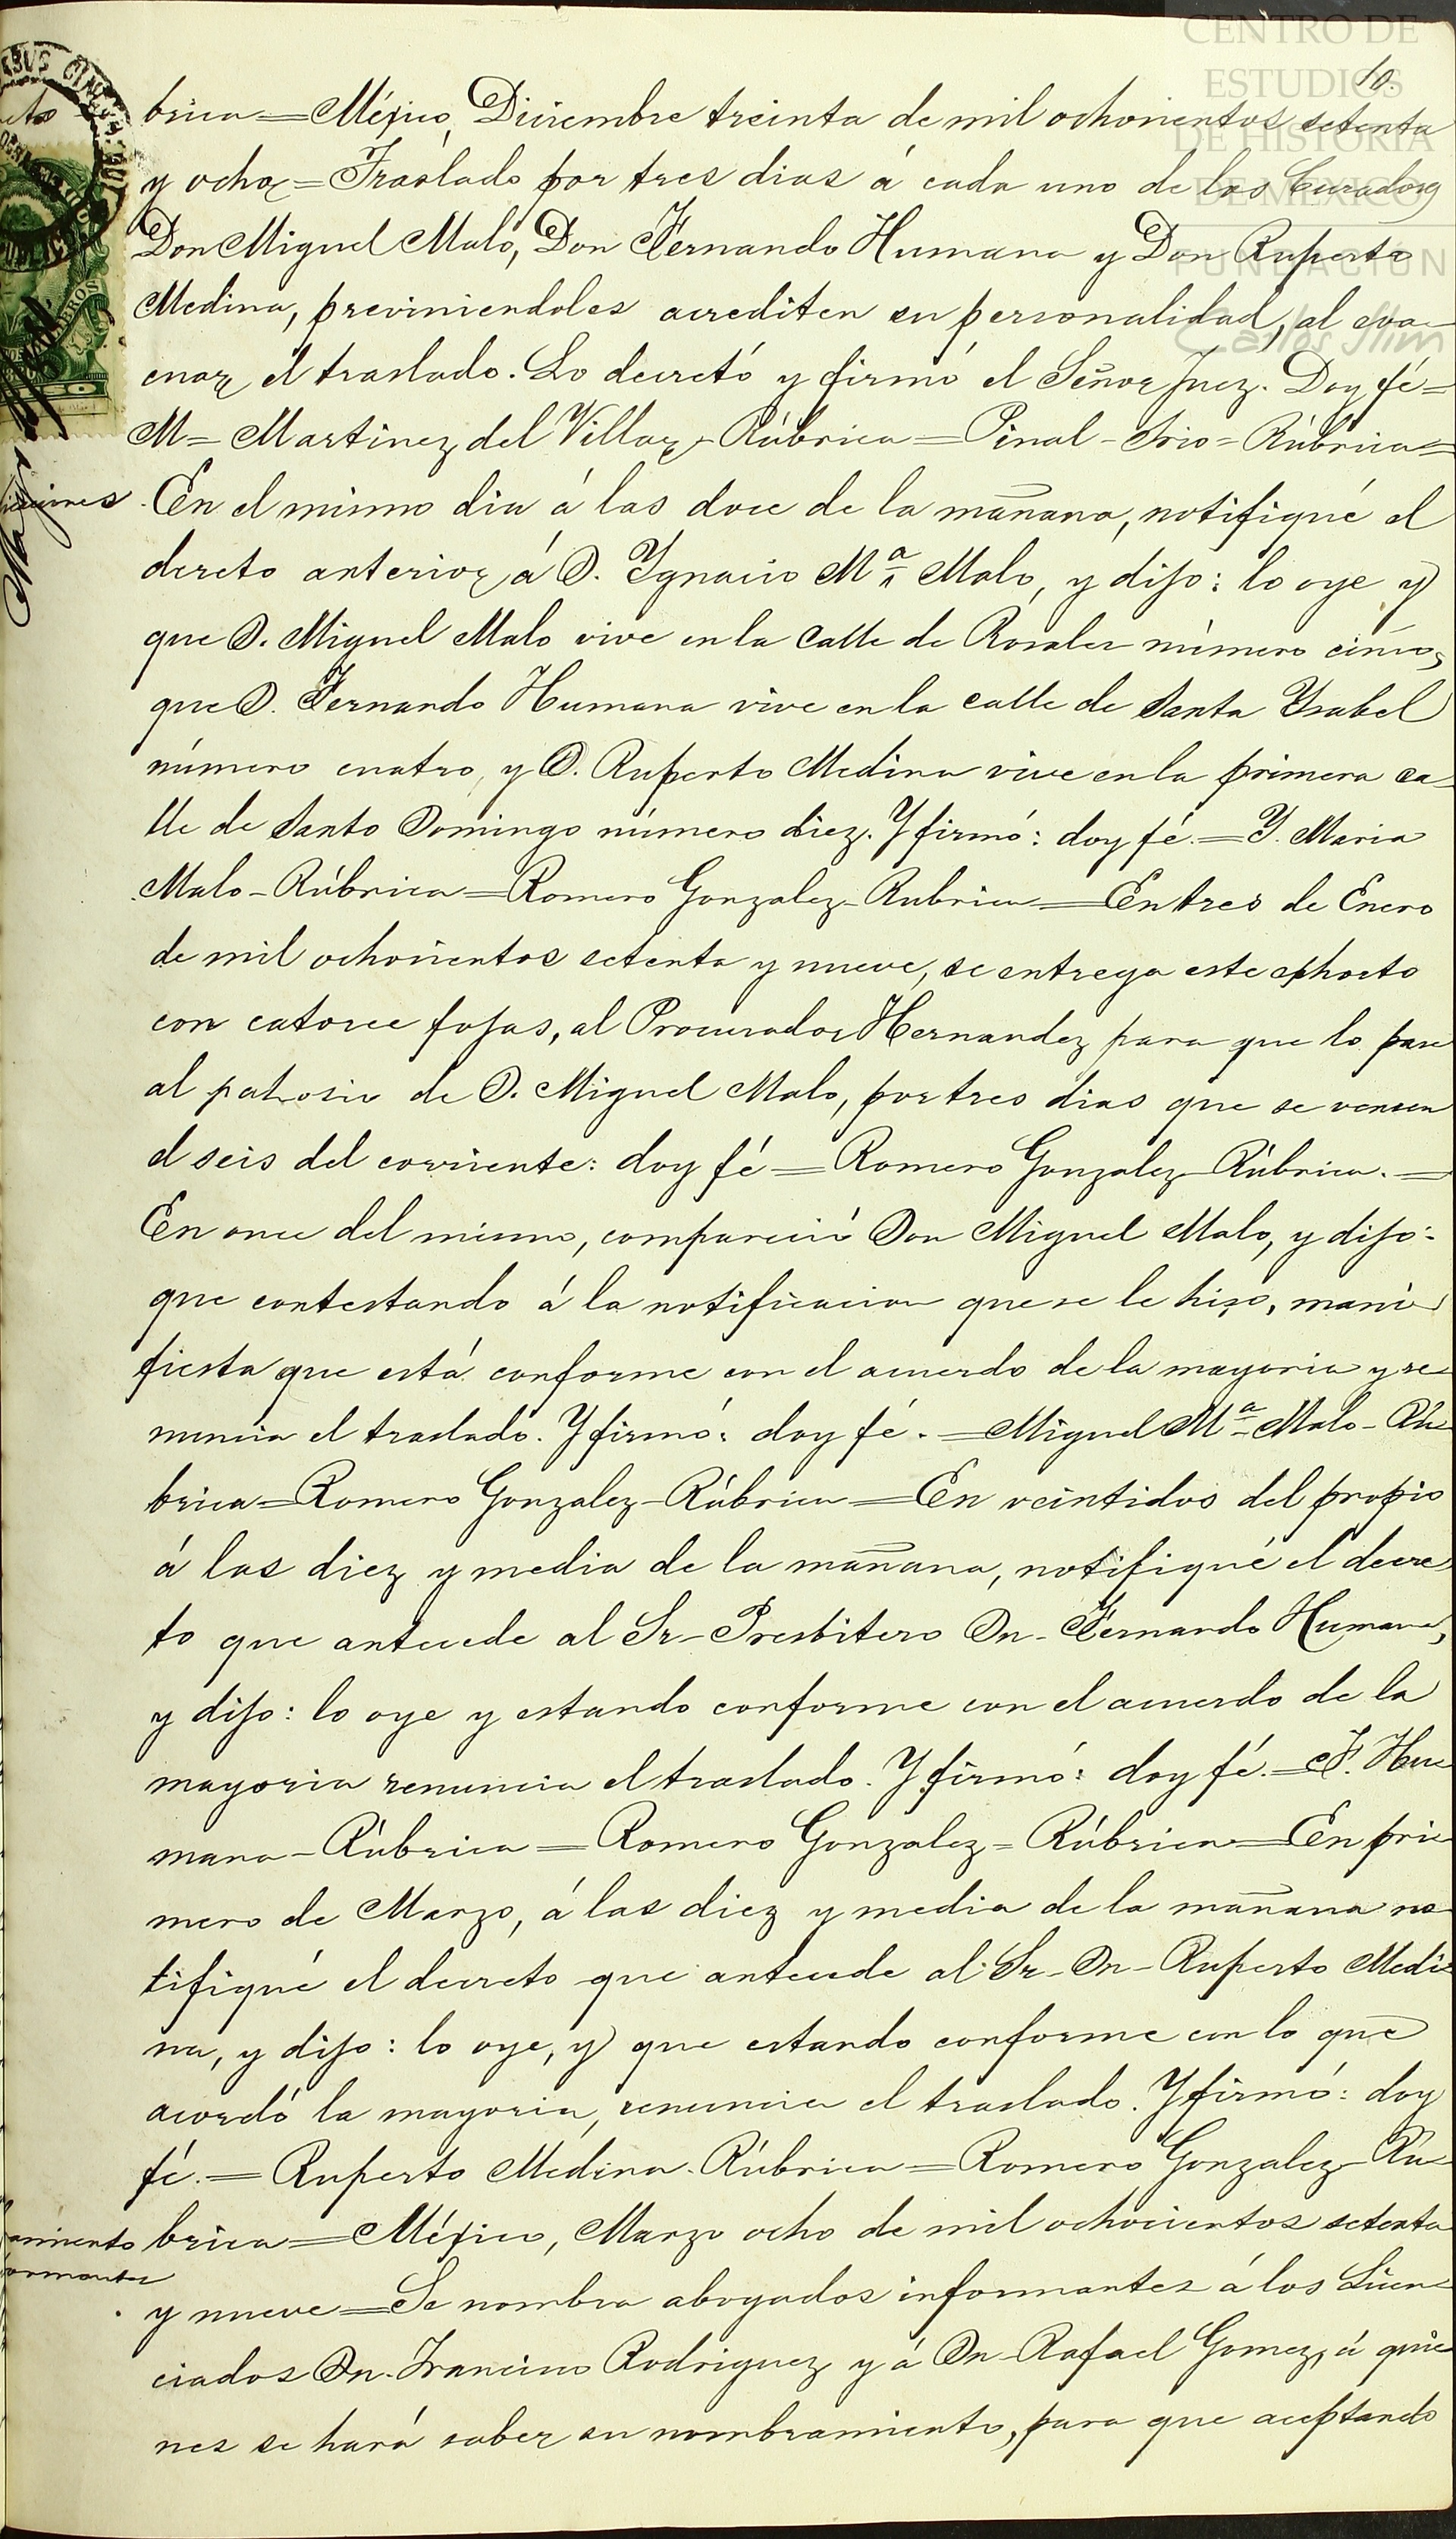 CENTRO DE
ESTUDIOS
DE HISTORIA
DE MEXICO
FUNDACIÓN
Carlos Slim
10.
brica=México, Diciembre treinta de mil ochocientos setenta
y ocho=Traslado por tres dias á cada uno de los Curadores
Don Miguel Malo, Don Fernando Humana y Don Ruperto
Medina, previniendoles acrediten su personalidad, al eva-
cuar el traslado. Lo decretó y firmó el Señor Juez. Doy fé=
M= Martinez del Villar-Rúbrica=Pinal-Srio=Rúbrica=
En el mismo dia á las doce de la mañana, notifiqué el
decreto anterior á D. Ygnacio Mª Malo, y dijo: lo oye y
que D. Miguel Malo vive en la calle de Rosales número cinco,
que D. Fernando Humana vive en la calle de Santa Ysabel
número cuatro, y D. Ruperto Medina vive en la primera ca-
lle de Santo Domingo número diez. Y firmó: doy fé.=Y. Maria
Malo-Rúbrica=Romero Gonzalez-Rubrica=En tres de Enero
de mil ochocientos setenta y nueve, se entrega este
con catorce fojas, al Procurador Hernandez para que lo pase
al patrosio de D. Miguel Malo, por tres dias que se vencen
el seis del corriente: doy fé=Romero Gonzalez-Rúbrica.=
En once del mismo, compareció Don Miguel Malo, y dijo:
que contestando á la notificacion que se le hizo, mani
fiesta que está conforme con el acuerdo de la mayoria y re
nuncia el traslado. Y firmó: doy fé.=Miguel Mª Malo-Rú
brica=Romero Gonzalez-Rúbrica=En veintidos del propio
á las diez y media de la mañana, notifiqué el decre
to que antecede al Sr-Presbitero Dn-Fernando Humana,
y dijo: lo oye y estando conforme con el acuerdo de la
mayoria renuncia el traslado. Y firmó: doy fé.=F. Hu
mana-Rúbrica=Romero Gonzalez=Rúbrica=En pri
mero de Marzo, á las diez y media de la mañana no
tifiqué el decreto que antecede al Sr-Dn-Ruperto Medi
na, y dijo: lo oye, y que estando conforme con lo que
acordó la mayoria, renuncia el traslado. Y firmó: doy
fé.=Ruperto Medina-Rúbrica=Romero Gonzalez-Rú
amiento
brica=México, Marzo ocho de mil ochocientos setenta
ormantes
y nueve=Se nombra abogados informantes á los Licen
ciados Dn-Francisco Rodriguez y á Dn-Rafael Gomez, á quie
nes se hará saber su nombramiento, para que aceptando